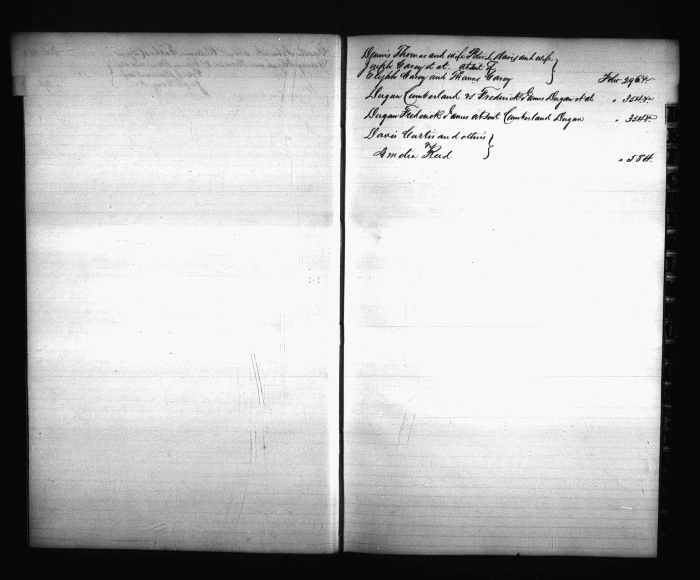 Dennis Thomas and wife Peter L Davis and wife }
Joseph Carey et al. at suit of
Elijah Carey and Thomas Carey Folio 296 &c
Dugan Cumberland vs Frederick James Dugan et al " 354 &c
Dugan Frederick James at suit Cumberland Dugan " 354 &c
Davis Curtis and others }
vs
Amelia Reed " 584.